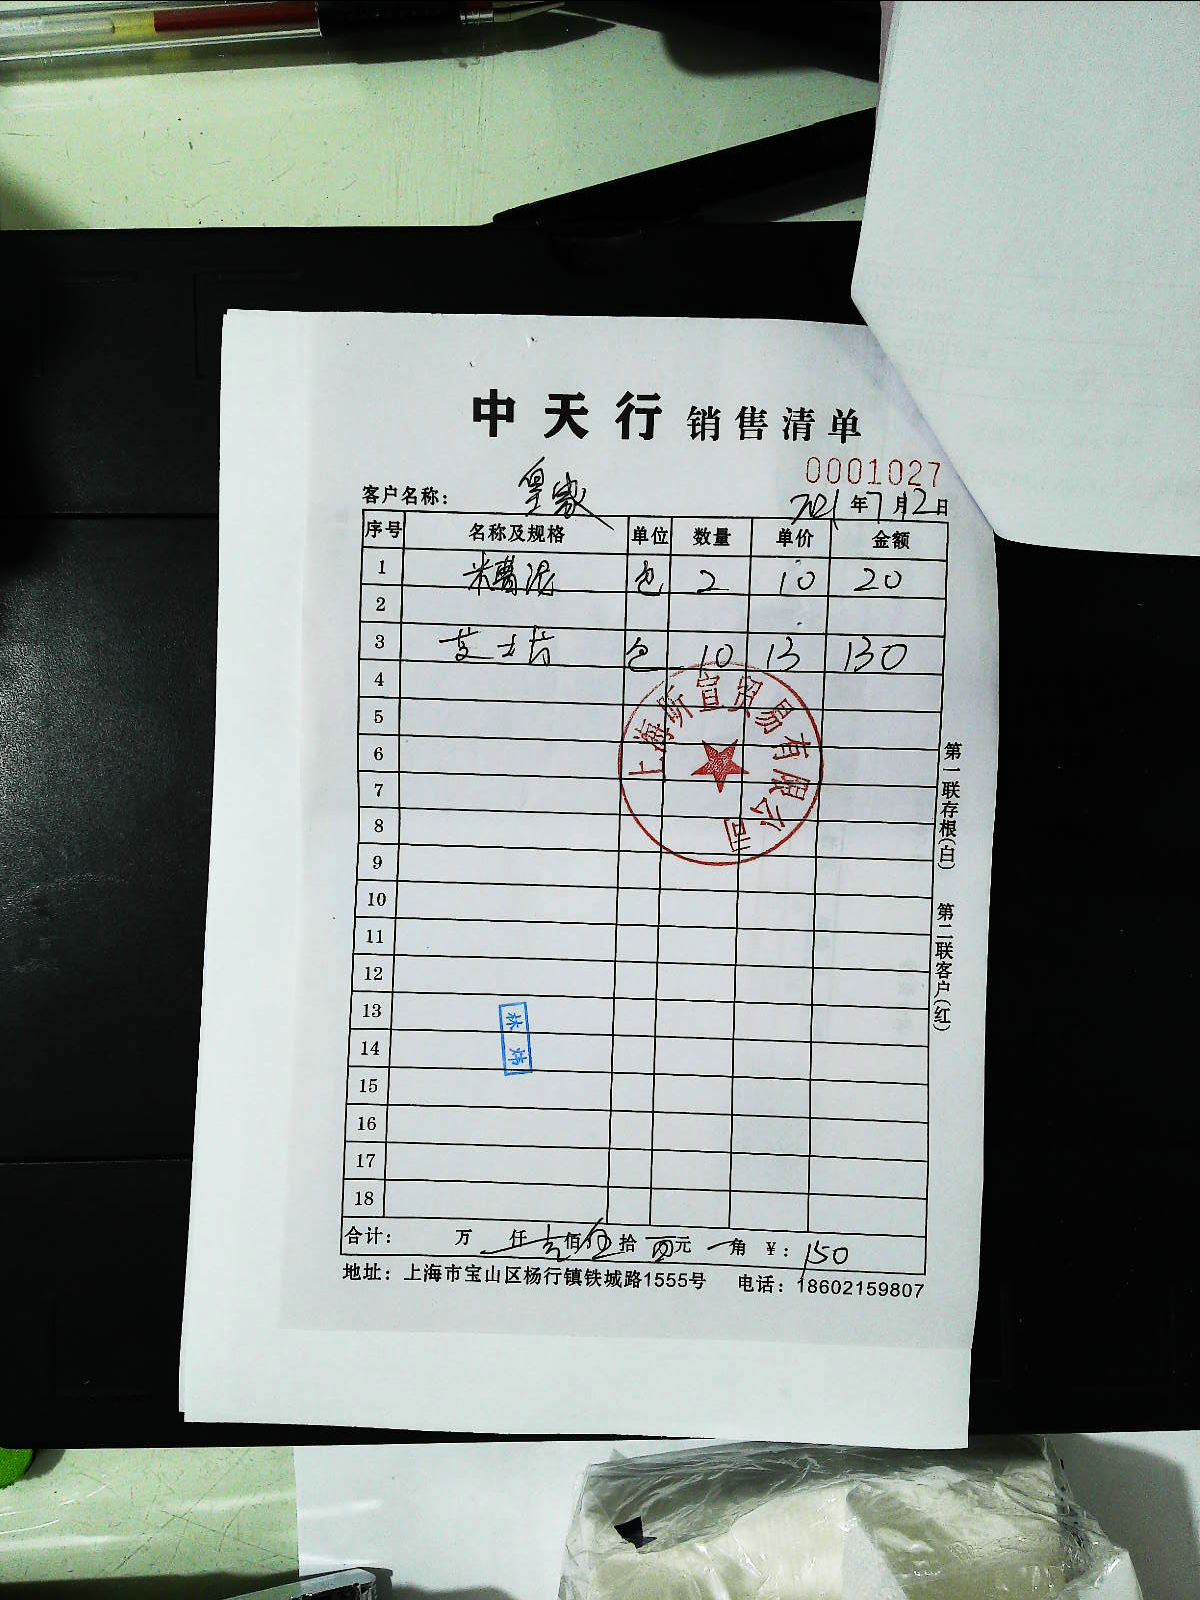 中天行 销售清单
0001027
客户名称: 皇家 2021年7月2日
序号 名称及规格 单位 数量 单价 金额
1 包 2 10 20
2
3 芝士片 包 10 13 130
4
5
6
7
8
9
10
11
12
13
14
15
16
17
18
上海昕宣贸易有限公司
林炜
合计: 万 仟 壹佰伍拾 元 角 ¥: 150
地址: 上海市宝山区杨行镇铁城路1555号 电话: 18602159807
第一联存根(白) 第二联客户(红)